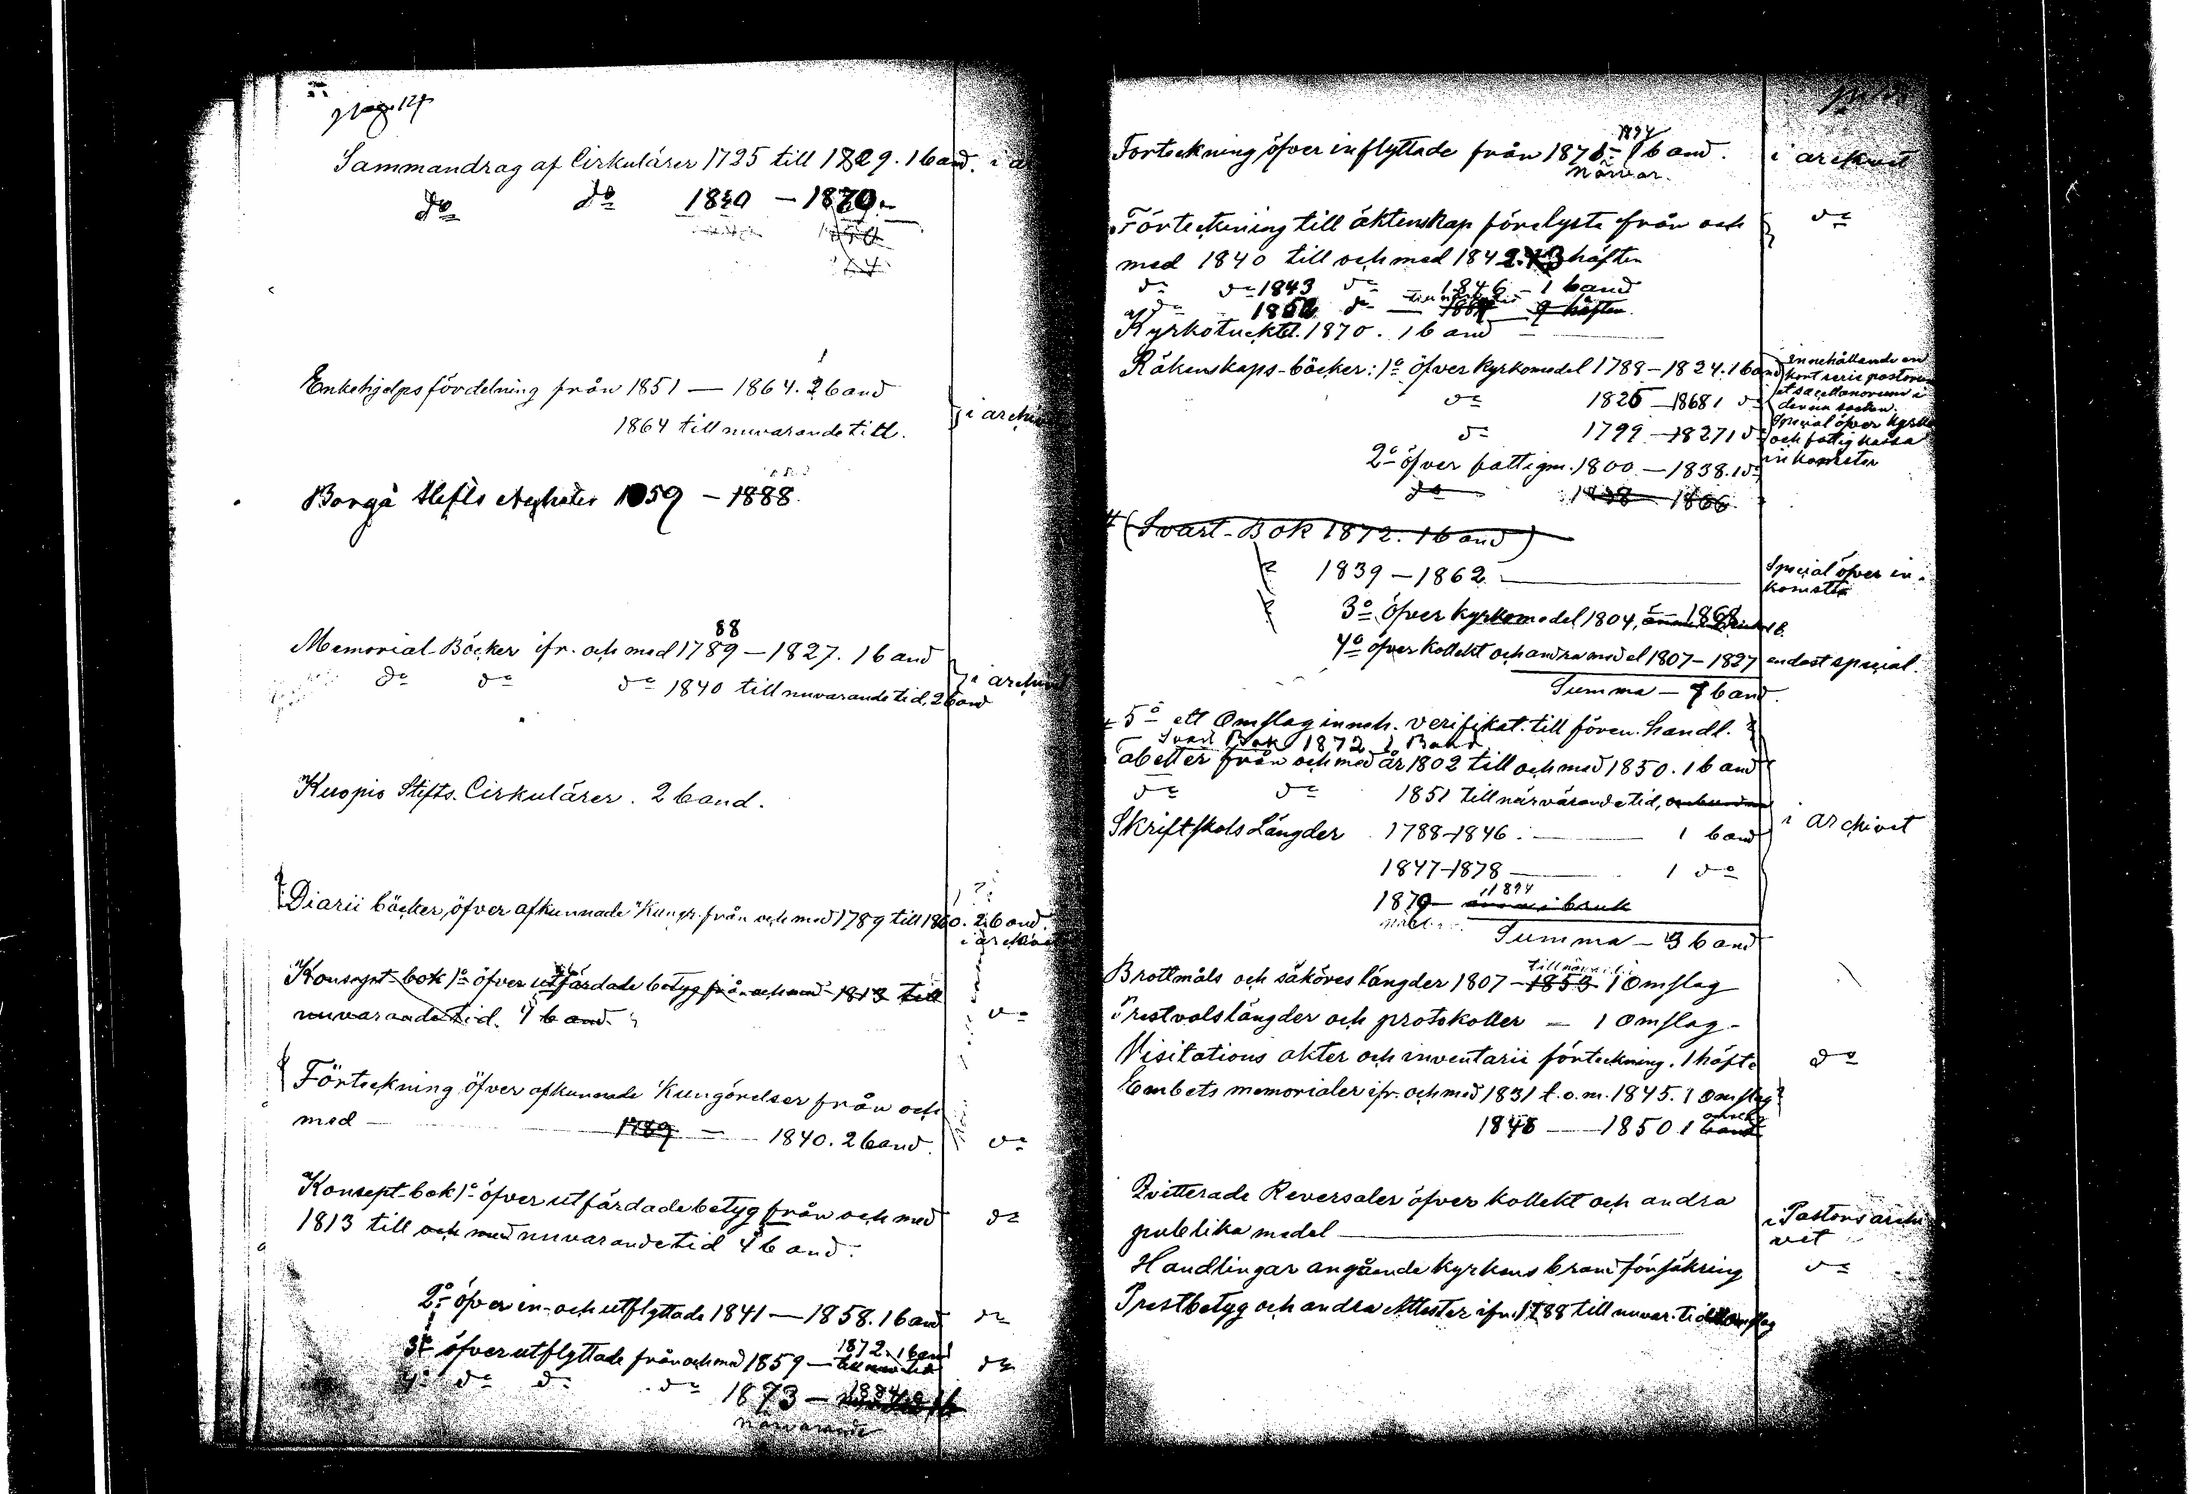 pag. 127
Sammandrag af Cirkulärer 1725 till 1829. 1 band. i a
do do 1840 – 1870.
Enkehjelpsfördelning från 1851 — 1864. 2 band
1864 till nuvarande titt.
i archiv
Borgå Stifts Nyheter 1859 – 1888.
88
Memorial-Böcker ifr. och med 1789 – 1827. 1 band
do do do 1840 till nuvarande tid, 2 band
i archivet
Kuopio Stifts. Cirkulärer. 2 band.
Diarii böcker, öfver afkunnade Kungr. från och med 1789 till 1860. 2 band.
i arkivet
Konsept-bok 1o öfver utfärdade betyg från och med 1813 till
nuvarande tid. 4 band. do
Förteckning öfver afkunnade Kungörelser från och
med — 1789 — 1840. 2 band. do
Konsept-bok 1o öfver utfärdade betyg från och med do
1813 till och med nuvarande tid 4 band.
2o öfver in- och utflyttade 1841 — 1858. 1 band do
1872. 1 band
3o öfver utflyttade från och med 1859 — till nuv. tid do
4o do do do 1873 – 1894
närvarande
1894
Forteckning öfver inflyttade från 1878 – 1 band. i arckivet
närvar.
Förteckning till äktenskap förelyste från och do
med 1840 till och med 1842. 3 häften
do do 1843 do — 1846 – 1 band
do 1852 do — 9 häften.
Kyrkotucktl. 1870. 1 band
Räkenskaps-böcker: 1o öfver Kyrkomedel 1788 – 1824. 1 band
Innehållande en
kort serie pastorum
et sacellanorum i
denna socken.
do 1825 – 1868 1 do
do 1799 – 1827 1 do
Special öfver kyrko
och fattigkassa
inkomster
2o öfver fattigm. 1800 — 1838. 1 do
do 1838 – 1866
(Svart-Bok 1872. 1 band)
1839 – 1862.
Special öfver in-
komster
3o öfver kyrkomedel 1804, — 1868
4o öfver kollekt och andra medel 1807 – 1827 endast special.
Summa — 9 band.
5o ett Omslag inneh. verifikat. till fören. handl.
Svart Bok 1872 1 Band
Tabeller från och med år 1802 till och med 1850. 1 band
do do 1851 till närvärande tid, oinbunden
Skriftskols Längder 1788–1846. — 1 band
i archivet
1847–1878 — 1 do
1894
1879 — ännu i bruk
Summa – 3 band
Brottmåls och säköres längder 1807 – 1853 1 Omslag
Prestvalslängder och protokoller — 1 Omslag –
Visitations akter och inventarii förteckning. 1 häfte do
Embets memorialer ifr. och med 1831 t.o.m. 1845. 1 Omslag
1846 — 1850 1 band
Qvitterade Reversaler öfver kollekt och andra
publika medel
i Pastorsarchi
vet
Handlingar angående kyrkans brandförsäkring do
Prestbetyg och andra Attester ifr. 1788 till nuvar. tid Omslag